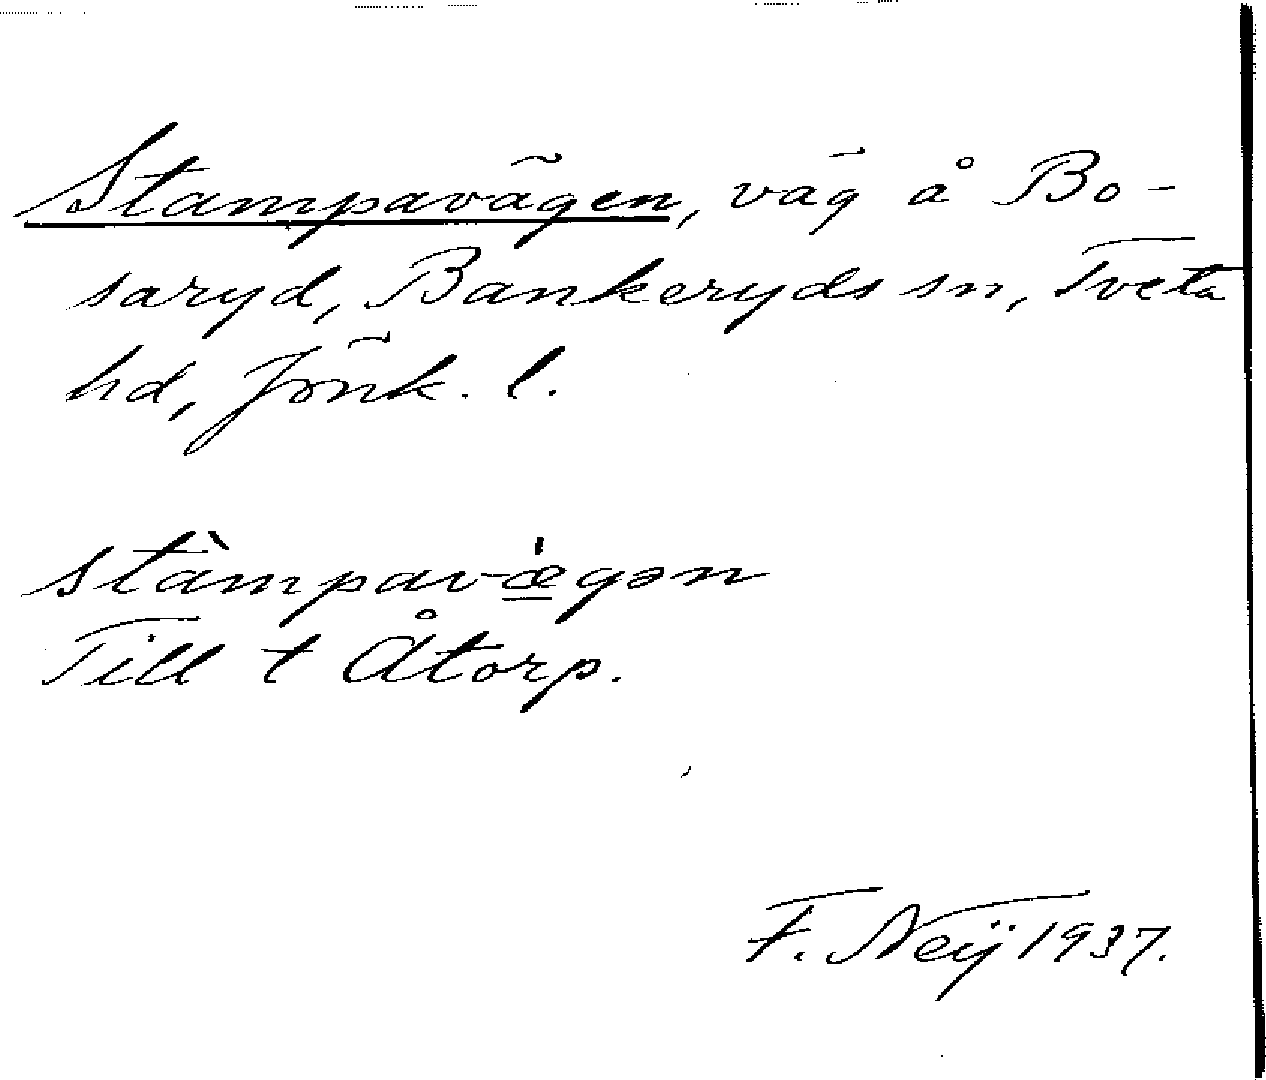 Stampavägen, väg å Bo-
saryd, Bankeryds sn, Tveta
hd, Jönk. l.
stàmpavæ̲̀gən
Till t Åtorp.
F. Neij 1937.